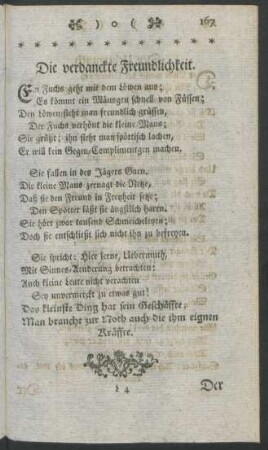 )o( 167
Die verdanckte Freundlichkeit.
Ein Fuchs geht mit dem Löwen aus;
Es kömmt ein Mäusgen schnell von Füssen;
Den Löwen sieht man freundlich grüssen,
Der Fuchs verhönt die kleine Maus;
Sie grüßt; ihn sieht man spöttisch lachen,
Er will kein Gegen-Complimentgen machen.
Sie fallen in des Jägers Garn,
Die kleine Maus zernagt die Netze,
Daß sie den Freund in Freyheit setze;
Den Spötter läßt sie ängstlich harrn.
Sie hört zwar tausend Schmeicheleyen;
Doch sie entschließt sich nicht ihn zu befreyen.
Sie spricht: Hier lerne, Uebermuth,
Mit Sinnes-Aenderung betrachten:
Auch kleine Leute nicht verachten
Sey unvermerckt zu etwas gut!
Das kleinste Ding hat sein Geschäffte,
Man braucht zur Noth auch die ihm eignen
Kräffte.
L 4 Der